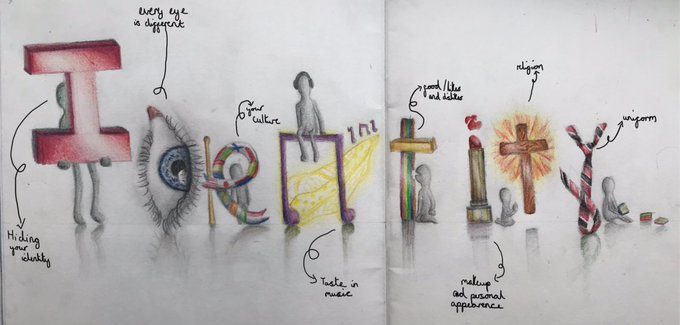 Identity
every eye
is different
Hiding
your
identity
your
culture
Taste in
music
/likes
and dislikes
religion
makeup
and personal
appearence
uniform